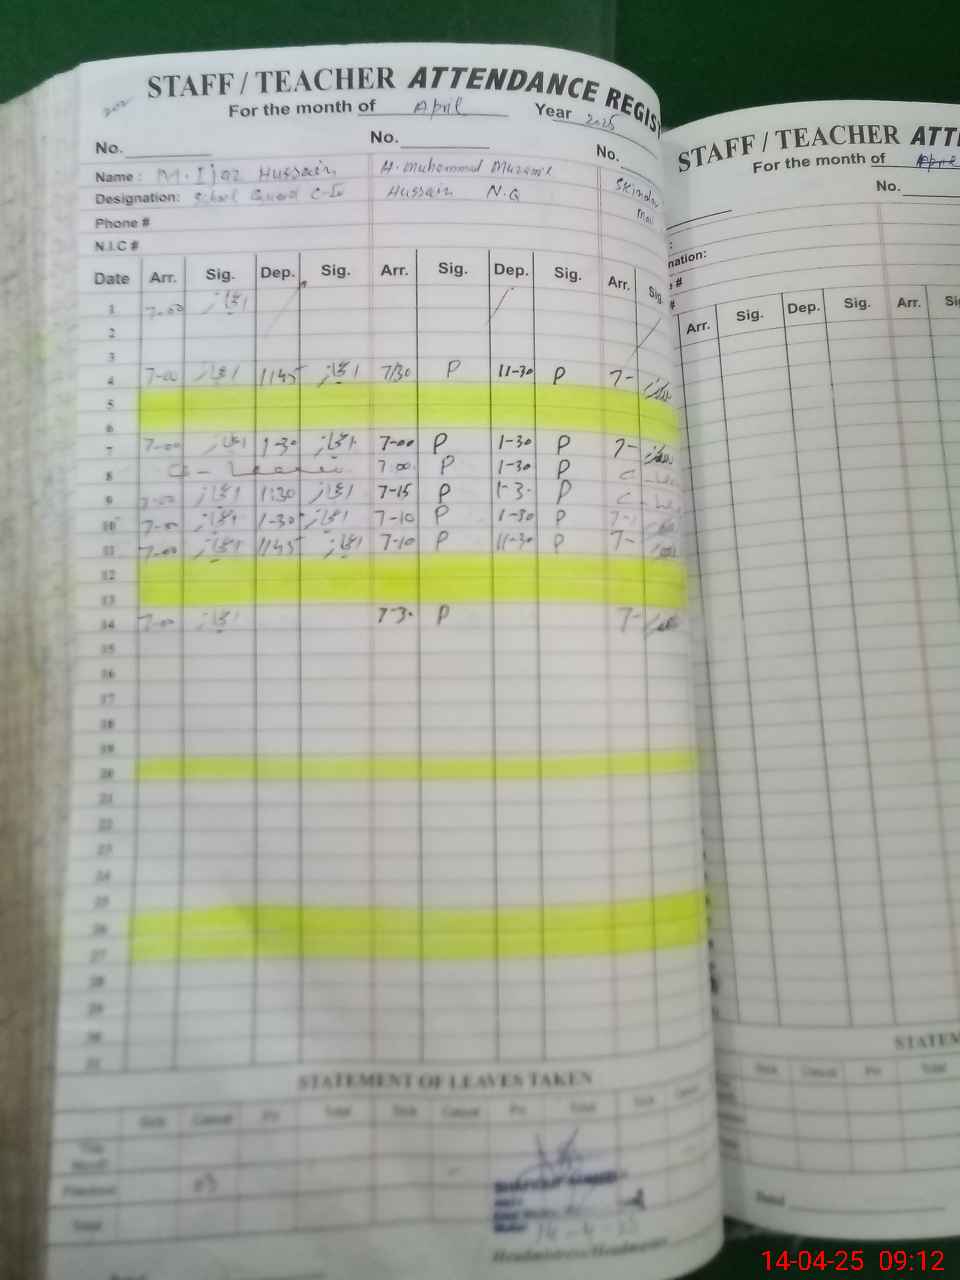 STAFF / TEACHER ATTENDANCE REGIS
For the month of April Year 2025
No. No. No.
Name : M. Ijaz Hussain H. Muhammad Muzamil
Designation: School Guard C-IV Hussain N.Q
Phone #
N.I.C #
Date Arr. Sig. Dep. Sig. Arr. Sig. Dep. Sig. Arr. Sig.
1 7-00 اعجاز
2
3
4 7-00 اعجاز 1145 اعجاز 7/30 P 11-30 P 7-
5
6
7 7-00 اعجاز 1-30 اعجاز 7-00 P 1-30 P 7-
8 C - Leave 7 00 P 1-30 P
9 7-00 اعجاز 1:30 اعجاز 7-15 P 1-3. P
10 7-00 اعجاز 1-30 اعجاز 7-10 P 1-30 P 7-
11 7-00 اعجاز 1145 اعجاز 7-10 P 11-30 P 7-
12
13
14 7-00 اعجاز 7-3. P 7-
15
16
17
18
19
20
21
22
23
24
25
26
27
28
29
30
31
STATEMENT OF LEAVES TAKEN
Sick Casual Pri Total Sick Casual Pri Total Sick Casual
This Month
Previous 03
Total
14-4-25
Headmistress/Headmaster
STAFF / TEACHER ATT
For the month of April
No.
nation:
#
#
Arr. Sig. Dep. Sig. Arr. Si
STATEM
Sick Casual Pri Total
Dated
14-04-25 09:12